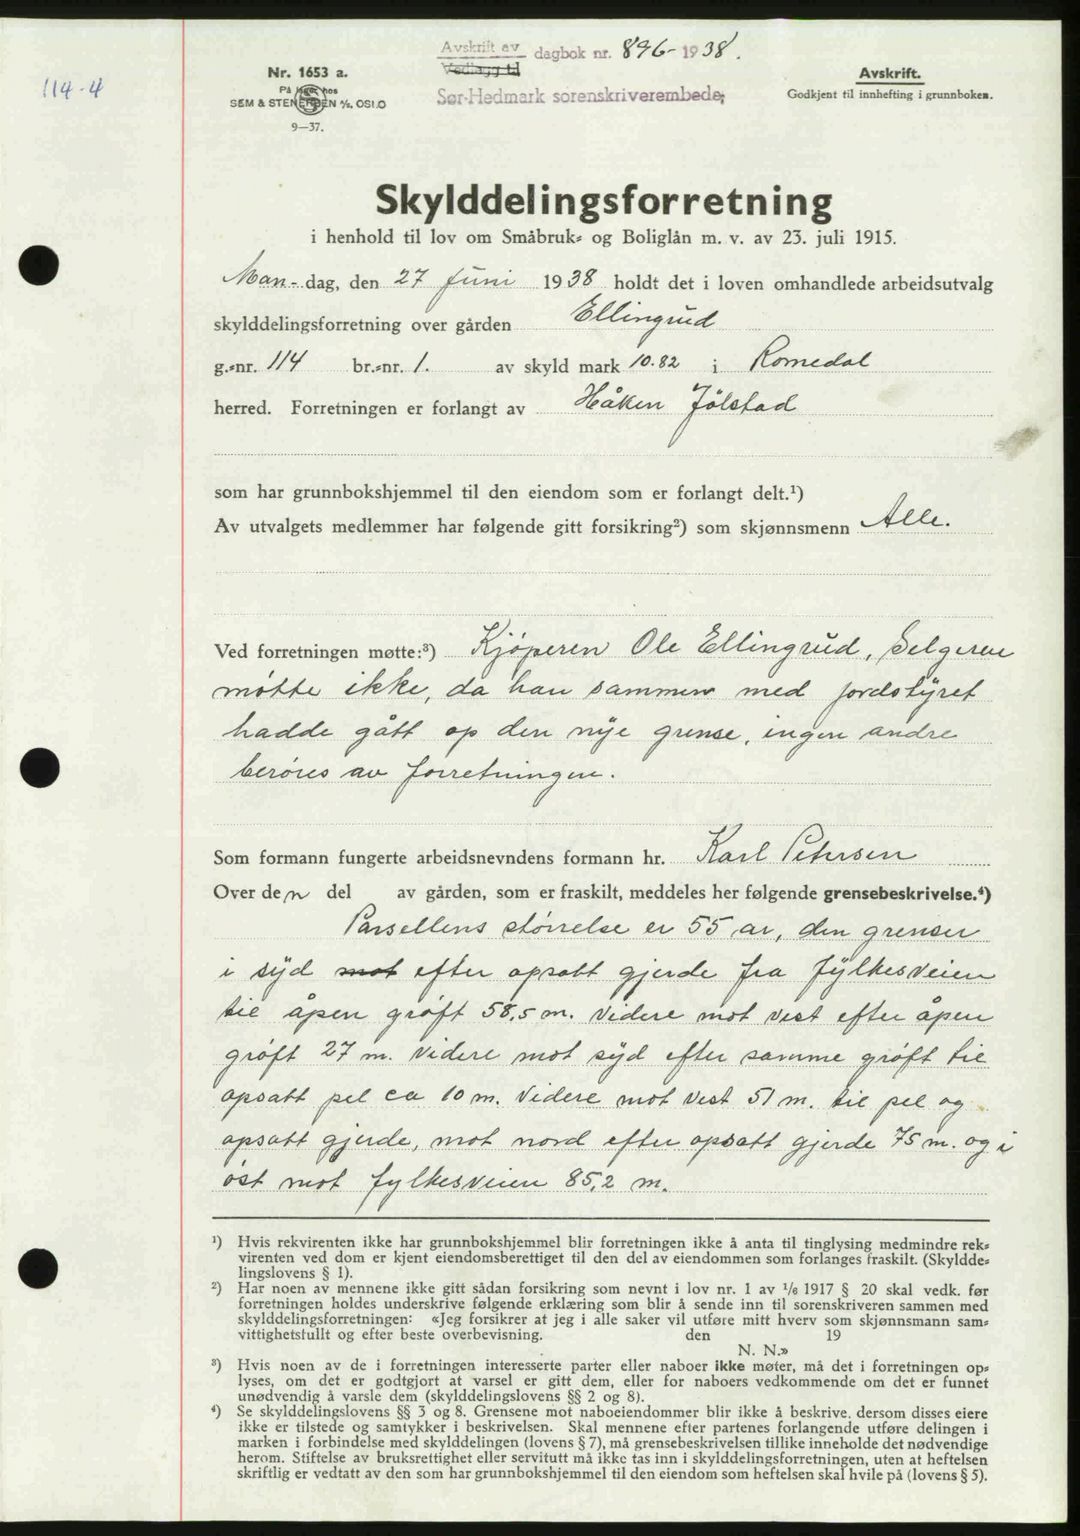 114-4
Avskrift av
Vedlagg til
dagbok nr. 896-1938.
Sør-Hedmark sorenskriverembede;
Nr. 1653 a.
På lager hos
SEM & STENERSEN A/S, OSLO
9—37.
Avskrift.
Godkjent til innhefting i grunnboken.
Skylddelingsforretning
i henhold til lov om Småbruk- og Boliglån m. v. av 23. juli 1915.
Man- dag, den 27 Juni 1938 holdt det i loven omhandlede arbeidsutvalg
skylddelingsforretning over gården Ellingrud
g.-nr. 114 br.-nr. 1. av skyld mark 10.82 i Romedal
herred. Forretningen er forlangt av Håken Jölstad
som har grunnbokshjemmel til den eiendom som er forlangt delt.¹)
Av utvalgets medlemmer har følgende gitt forsikring²) som skjønnsmenn Alle.
Ved forretningen møtte:³) Kjöperen Ole Ellingrud, Selgeren
mötte ikke, da han sammen med jordstyret
hadde gått op den nye grense, ingen andre
beröres av forretningen.
Som formann fungerte arbeidsnevndens formann hr. Karl Petersen
Over den del av gården, som er fraskilt, meddeles her følgende grensebeskrivelse.⁴)
Parsellens störrelse er 55 ar, den grenser
i syd mot efter opsatt gjerde fra fylkesveien
til åpen gröft 58,5 m. Videre mot vest efter åpen
gröft 27 m. Videre mot syd efter samme gröft til
opsatt pel ca 10 m. Videre mot vest 51 m. til pel og
opsatt gjerde, mot nord efter opsatt gjerde 75 m. og i
öst mot fylkesveien 85,2 m.
¹) Hvis rekvirenten ikke har grunnbokshjemmel blir forretningen ikke å anta til tinglysing medmindre rek-
virenten ved dom er kjent eiendomsberettiget til den del av eiendommen som forlanges fraskilt. (Skyldde-
lingslovens § 1).
²) Har noen av mennene ikke gitt sådan forsikring som nevnt i lov nr. 1 av 1/6 1917 § 20 skal vedk. før
forretningen holdes underskrive følgende erklæring som blir å sende inn til sorenskriveren sammen med
skylddelingsforretningen: «Jeg forsikrer at jeg i alle saker vil utføre mitt hverv som skjønnsmann sam-
vittighetsfullt og efter beste overbevisning. den 19
N. N.»
³) Hvis noen av de i forretningen interesserte parter eller naboer ikke møter, må det i forretningen op-
lyses, om det er godtgjort at varsel er gitt dem, eller for naboers vedkommende om det er funnet
unødvendig å varsle dem (skylddelingslovens §§ 2 og 8).
⁴) Se skylddelingslovens §§ 3 og 8. Grensene mot naboeiendommer blir ikke å beskrive, dersom disses eiere
ikke er tilstede og samtykker i beskrivelsen. Skal mennene efter partenes forlangende utføre delingen i
marken i forbindelse med skylddelingen (lovens § 7), må grensebeskrivelsen tillike inneholde det nødvendige
herom. Stiftelse av bruksrettighet eller servitutt må ikke tas inn i skylddelingsforretningen, uten at heftelsen
skriftlig er vedtatt av den som har grunnbokshjemmel til den eiendom som heftelsen skal hvile på (lovens § 5).